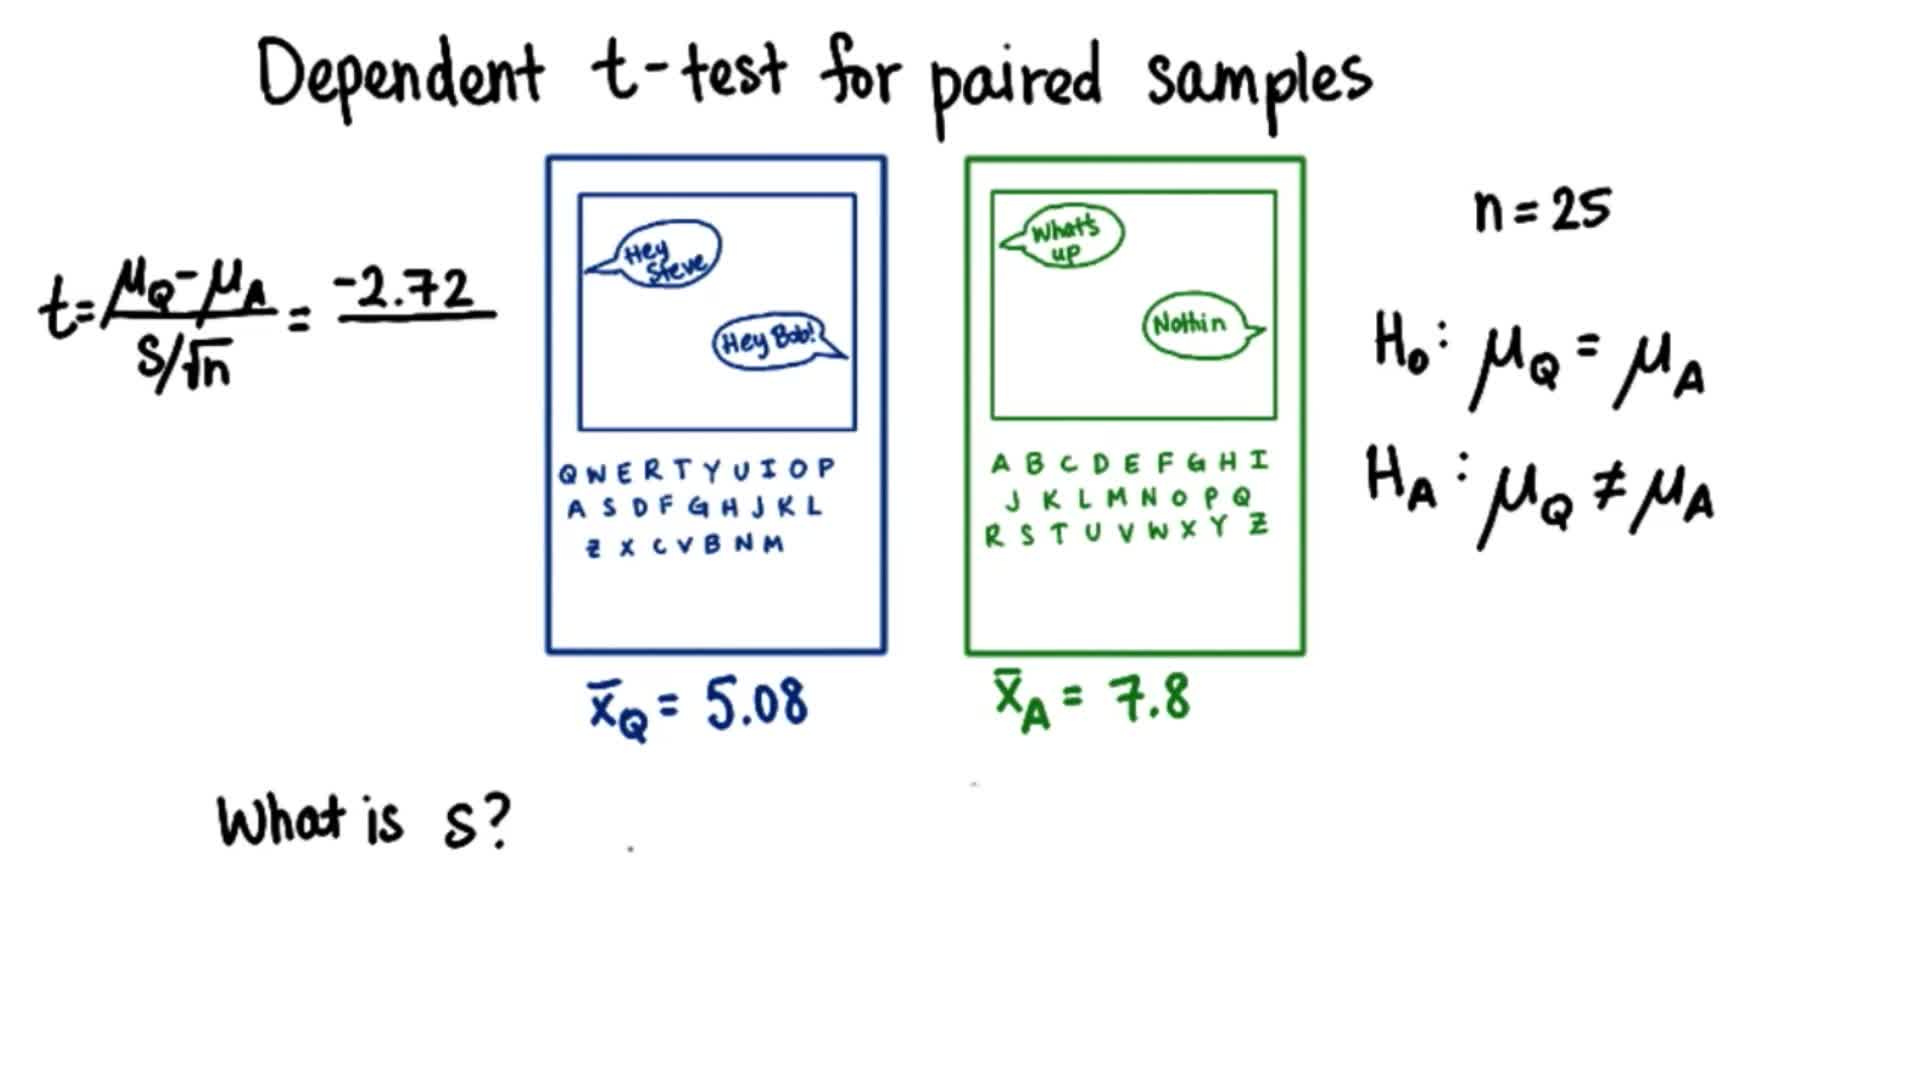 Dependent t-test for paired samples
t = μQ - μA / S/√n = -2.72
Hey
Steve
Hey Bob!
Q W E R T Y U I O P
A S D F G H J K L
Z X C V B N M
x̄Q = 5.08
What's
up
Nothin
A B C D E F G H I
J K L M N O P Q
R S T U V W X Y Z
x̄A = 7.8
n = 25
H₀: μQ = μA
HA: μQ ≠ μA
What is s?